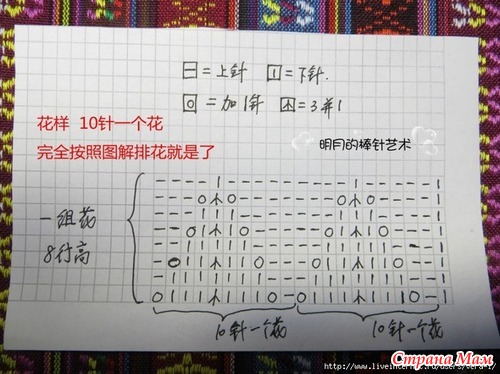 ⊟=上针 ㅣ=下针.
O=加1针 木=3并1
花样 10针一个花
完全按照图解排花就是了
明月的棒针艺术
一组花
8行高
10针一个花 10针一个花
Страна Мам